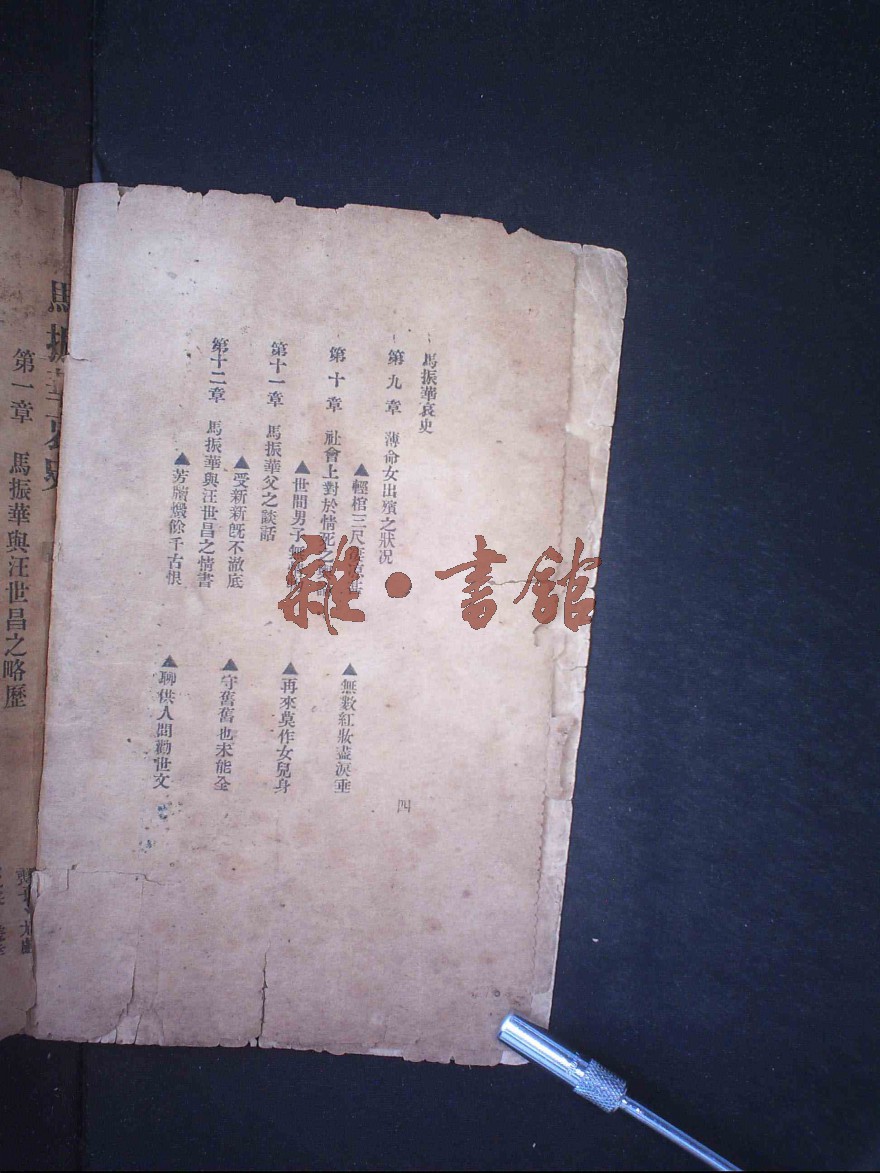 馬振華哀史
第九章　薄命女出殯之狀况
▲輕棺三尺　▲無數紅妝盡淚垂
四
第十章　社會上對於情死之
▲世間男子無　▲再來莫作女兒身
第十一章　馬振華父之談話
▲受新新旣不澈底　▲守舊舊也未能全
第十二章　馬振華與汪世昌之情書
▲芳牘燬餘千古恨　▲聊供人間勸世文
馬振華哀史
第一章　馬振華與汪世昌之略歷
雜·書館